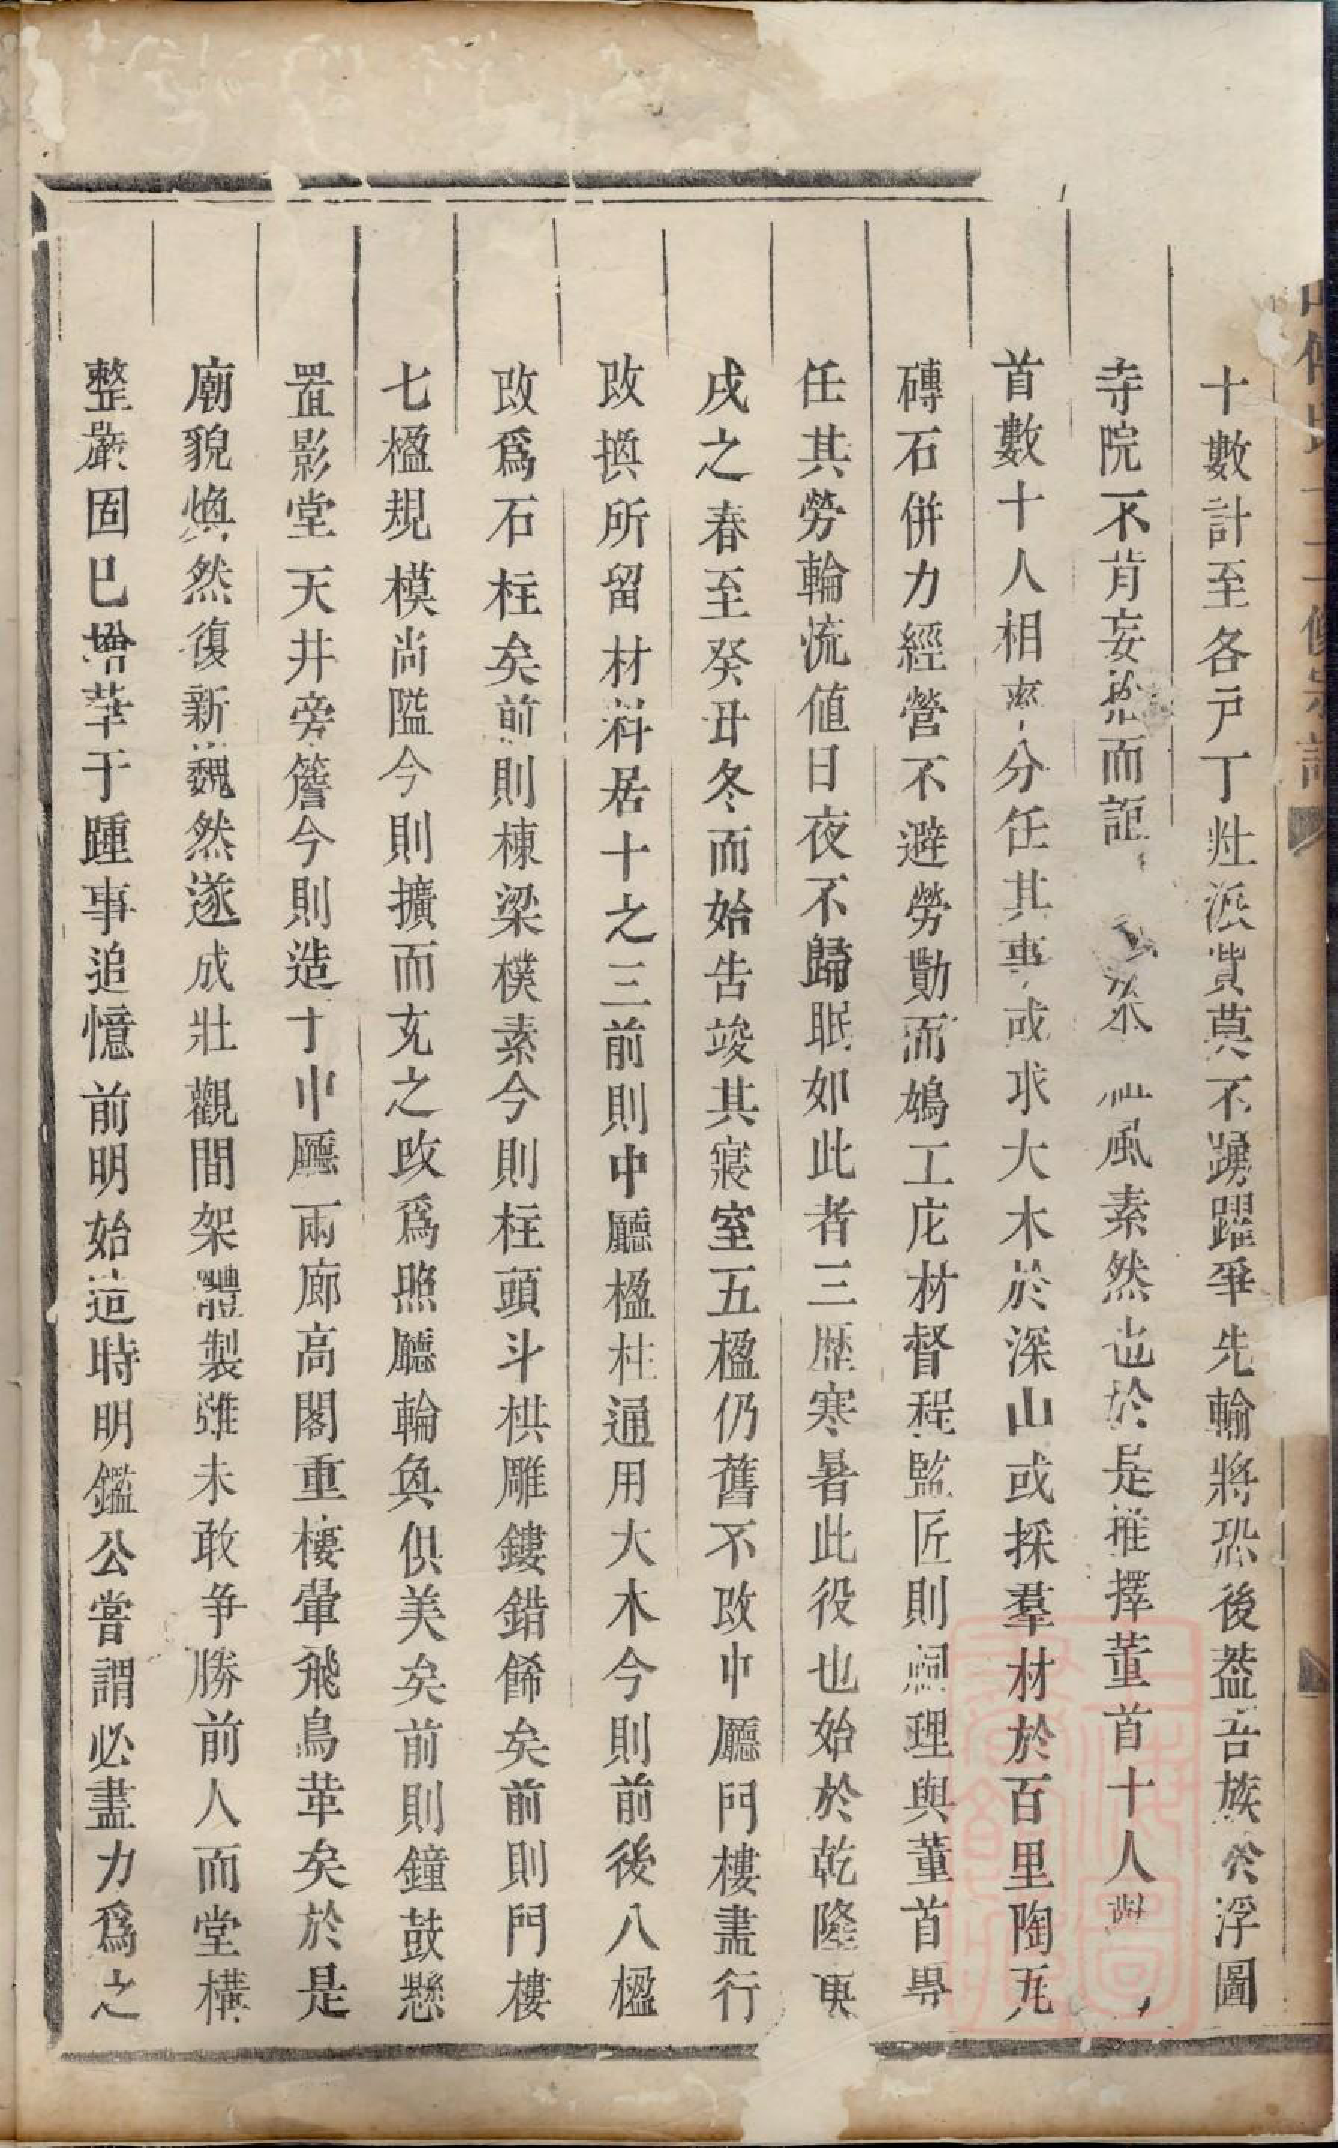 十數計至各戸丁壯派費莫不踴躍爭先輸將恐後葢吾族於浮圖
寺院不肯妄 而 風素然也於是推擇董首十人
首數十人相率分任其事或求大木於深山或採羣材於百里陶瓦
磚石併力經營不避勞勩而鳩工庀材督程監匠則 理與董首
任其勞輪流値日夜不歸眠如此者三歴寒暑此役也始於乾隆庚
戌之春至癸丑冬而始告竣其寢室五楹仍舊不改中廳門樓盡行
改換所留材料居十之三前則中廳楹柱通用大木今則前後八楹
改爲石柱矣前則棟梁樸素今則柱頭斗栱雕鏤錯餙矣前則門樓
七楹規模尚隘今則擴而充之改爲照廳輪奐俱美矣前則鐘鼓懸
置影堂天井旁簷今則造于中廳兩廊高閣重樓翬飛鳥革矣於是
廟貌煥然復新巍然遂成壯觀間架體製雖未敢爭勝前人而堂構
整嚴固已增華于踵事追憶前明始造時明鑑公嘗謂必盡力爲之